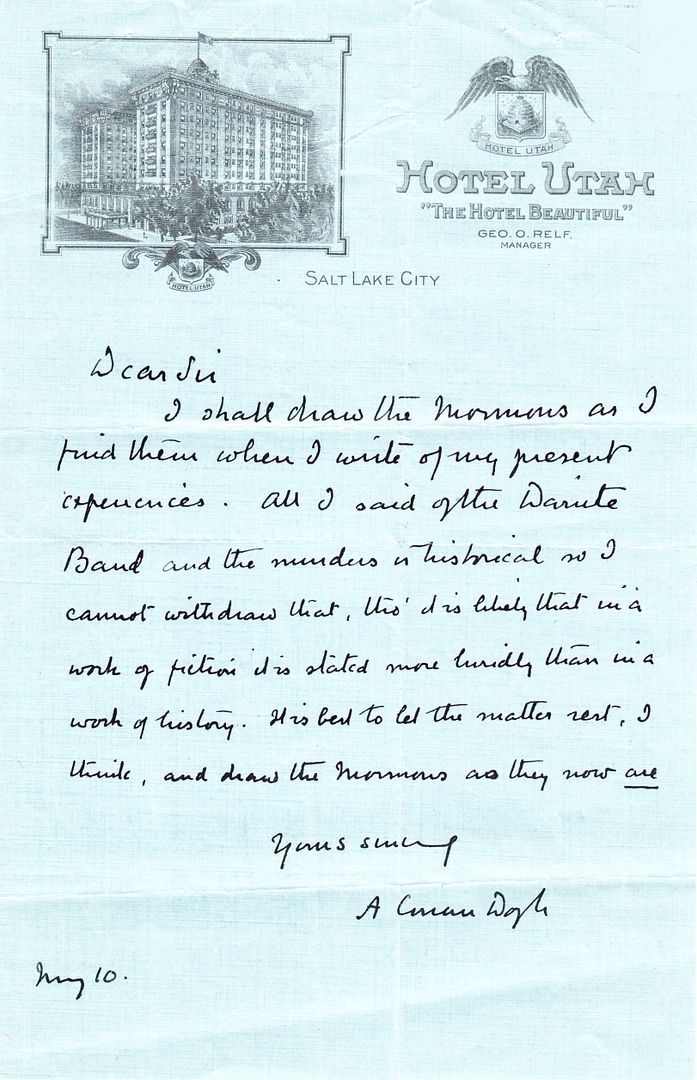 HOTEL UTAH
HOTEL UTAH
"THE HOTEL BEAUTIFUL"
GEO. O. RELF.
MANAGER
HOTEL UTAH
SALT LAKE CITY
Dear Sir
I shall draw the Mormons as I
find them when I write of my present
experiences. All I said of the Danite
Band and the murders is historical so I
cannot withdraw that, tho' it is likely that in a
work of fiction it is stated more luridly than in a
work of history. It is best to let the matter rest, I
think, and draw the Mormons as they now are
Yours sincerely
A Conan Doyle
May 10.